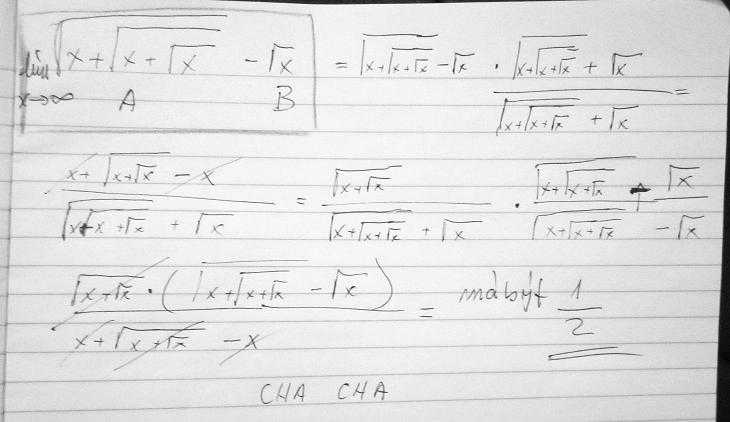 lim x→∞ √(x+√(x+√x)) - √x = √(x+√(x+√x)) - √x · (√(x+√(x+√x)) + √x)/(√(x+√(x+√x)) + √x) =
A B
(x+√(x+√x) - x)/(√(x+√(x+√x)) + √x) = √(x+√x)/(√(x+√(x+√x)) + √x) · (√(x+√(x+√x)) - √x)/(√(x+√(x+√x)) - √x)
(√(x+√x) · (√(x+√(x+√x)) - √x))/(x+√(x+√x) - x) = má být 1/2
CHA CHA